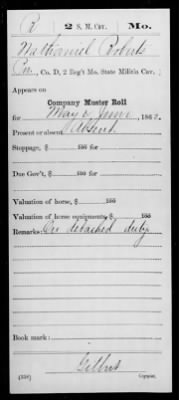 R 2 S. M. Cav. Mo.
Nathaniel Roberts
Co. D, 2 Reg't Mo. State Militia Cav.
Appears on
Company Muster Roll
for May & June, 186
Present or absent Absent
Stoppage, $ 100 for
Due Gov't, $ 100 for
Valuation of horse, $ 100
Valuation of horse equipments, $ 100
Remarks: On detached duty
Book mark:
(358) Copyist.